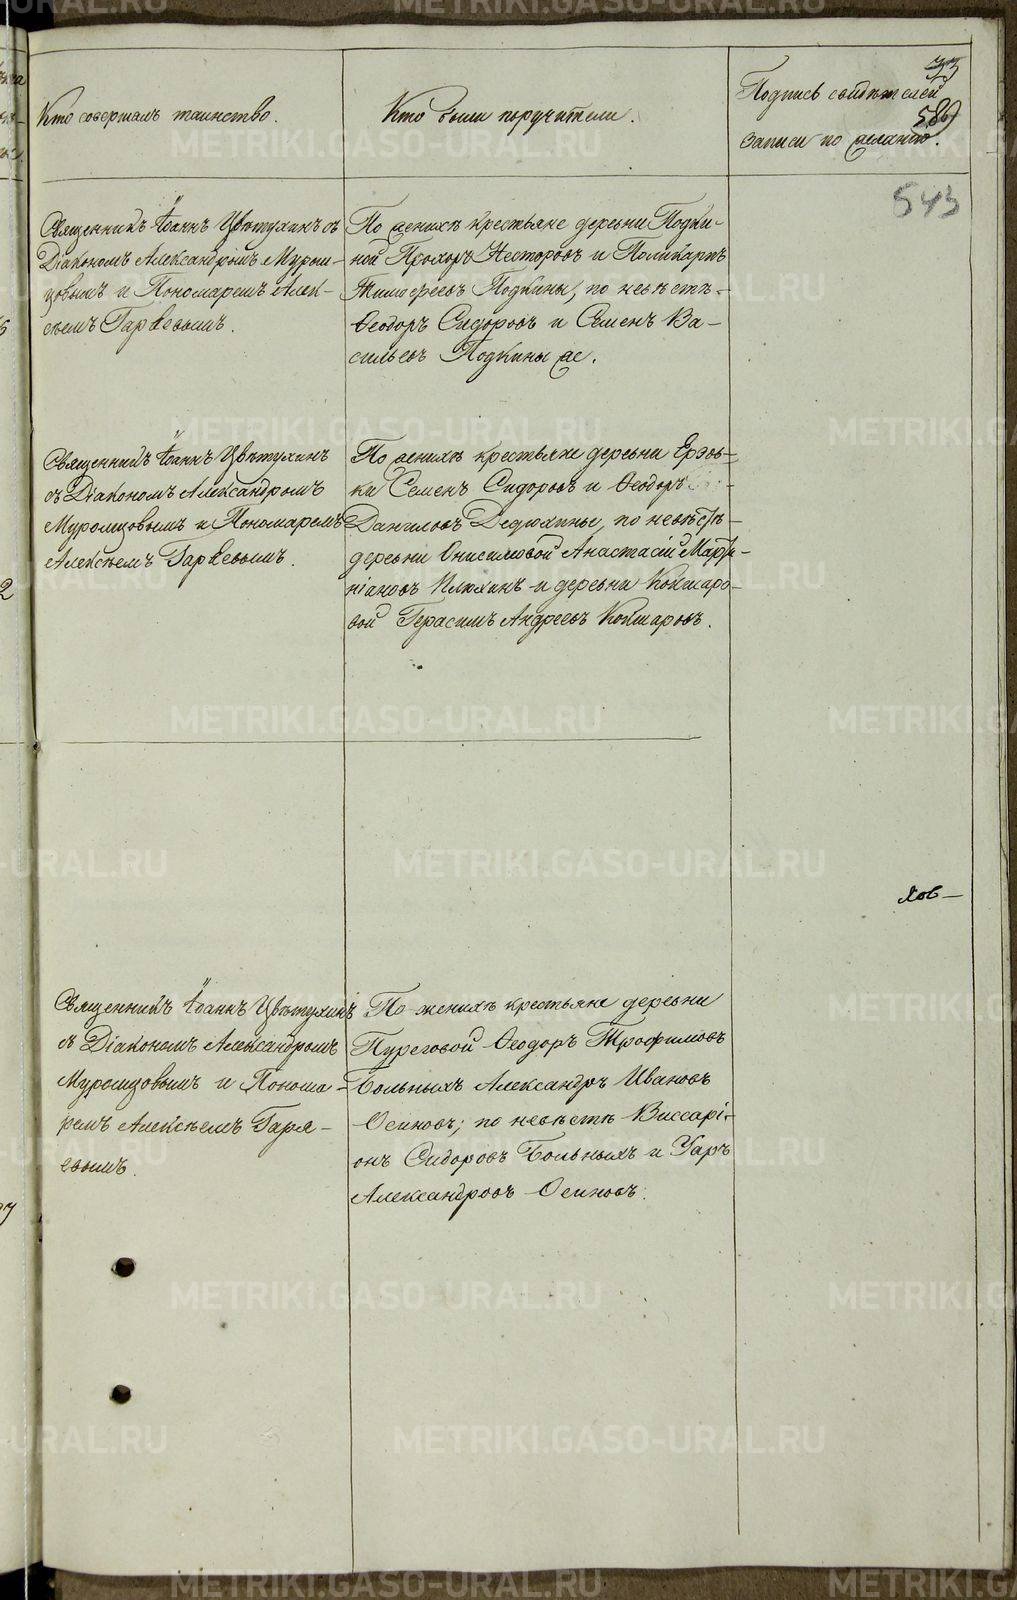 Кто совершалъ таинство.
Кто были поручители.
Подпись свидѣтелей
записи по желанію.
33
586
543
Священникъ Іоаннъ Цвѣтухинъ съ
Діакономъ Александромъ Муром-
цовымъ и Пономаремъ Алек-
сѣемъ Гаряевымъ.
По женихѣ крестьяне деревни Подки-
ной Прохоръ Несторовъ и Поликарпъ
Тимофеевъ Подкины, по невѣстѣ-
Ѳеодоръ Сидоровъ и Семенъ Ва-
сильевъ Подкины же.
Священникъ Іоаннъ Цвѣтухинъ
съ Діакономъ Александромъ
Муромцовымъ и Пономаремъ
Алексѣемъ Гаряевымъ.
По женихѣ крестьяне деревни Ерзов-
ки Семенъ Сидоровъ и Ѳеодоръ
Даниловъ Дедюхины, по невѣстѣ-
деревни Онисимовой Анастасій Марти-
ніановъ Илюхинъ и деревни Кокшаро-
вой Герасимъ Андреевъ Кокшаровъ.
хов-
Священникъ Іоаннъ Цвѣтухинъ
съ Діакономъ Александромъ
Муромцовымъ и Понома-
ремъ Алексѣемъ Гаря-
евымъ.
По женихѣ крестьяне деревни
Пуреговой Ѳеодоръ Трофимовъ
Больныхъ Александръ Ивановъ
Осиновъ; по невѣстѣ Виссарі-
онъ Сидоровъ Больныхъ и Уаръ
Александровъ Осиновъ.
METRIKI.GASO-URAL.RU